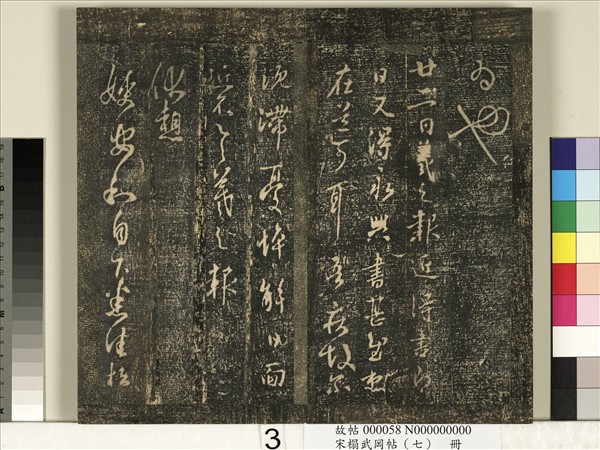 為也
廿二日羲之報近得書即
日又得永興書甚慰想
在道可耳吾疾故爾
沈滯憂悴解日面
近不具羲之報
伏想
嫂安和自下悉佳松
3
故帖 000058 N000000000
宋搨武岡帖(七) 冊